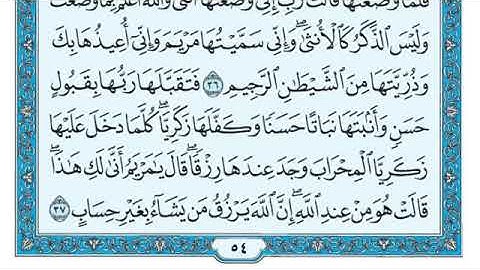 فَلَمَّا وَضَعَتْهَا قَالَتْ رَبِّ إِنِّي وَضَعْتُهَا أُنثَىٰ وَاللَّهُ أَعْلَمُ بِمَا وَضَعَتْ
وَلَيْسَ الذَّكَرُ كَالْأُنثَىٰ ۖ وَإِنِّي سَمَّيْتُهَا مَرْيَمَ وَإِنِّي أُعِيذُهَا بِكَ
وَذُرِّيَّتَهَا مِنَ الشَّيْطَانِ الرَّجِيمِ ٣٦ فَتَقَبَّلَهَا رَبُّهَا بِقَبُولٍ
حَسَنٍ وَأَنبَتَهَا نَبَاتًا حَسَنًا وَكَفَّلَهَا زَكَرِيَّا ۖ كُلَّمَا دَخَلَ عَلَيْهَا
زَكَرِيَّا الْمِحْرَابَ وَجَدَ عِندَهَا رِزْقًا ۖ قَالَ يَا مَرْيَمُ أَنَّىٰ لَكِ هَٰذَا ۖ
قَالَتْ هُوَ مِنْ عِندِ اللَّهِ ۖ إِنَّ اللَّهَ يَرْزُقُ مَن يَشَاءُ بِغَيْرِ حِسَابٍ ٣٧
٥٤